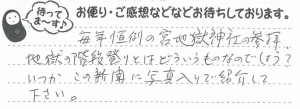 待ってま〜す♪
お便り・ご感想などなどお待ちしております。
毎年恒例の宮地獄神社の参拝
地獄の階段登りとはどういうものなのでしょう？
いつか この新聞に写真入りで紹介して
下さい。